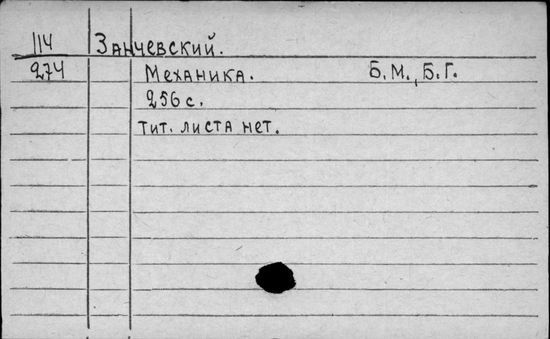 114 Занчевский.
274 Механика. Б.М., Б.Г.
256 с.
Тит. листа нет.